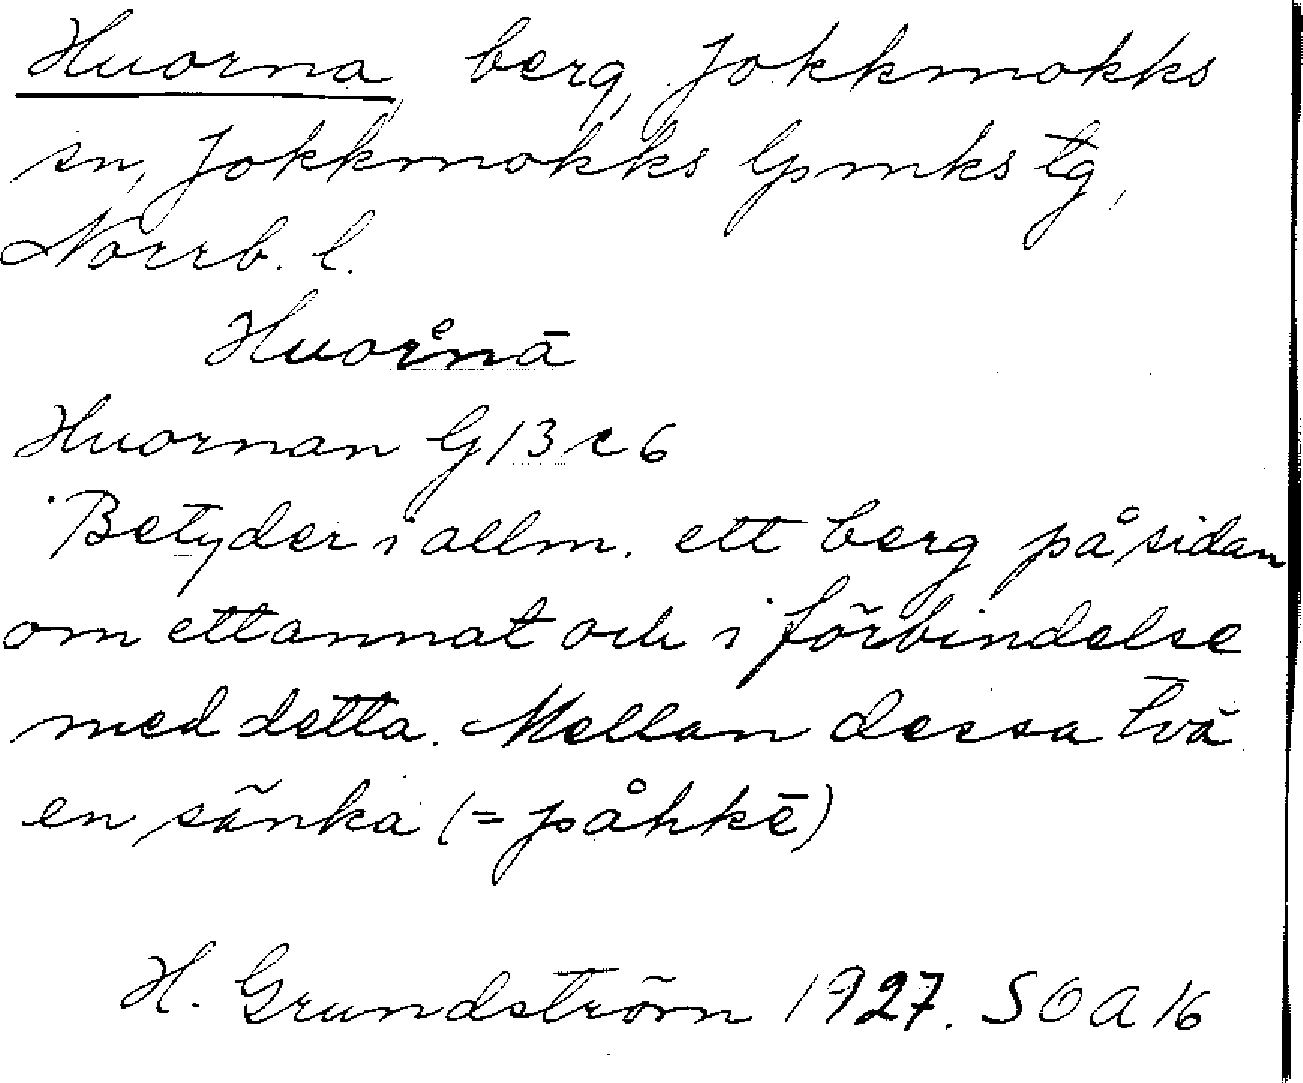 Huorna, berg, Jokkmokks
sn, Jokkmokks lpmks tg,
Norrb. l.
Huorᵉ̊nā
Huornan G 13 c 6
Betyder i allm. ett berg på sidan
om ett annat och i förbindelse
med detta. Mellan dessa två
en sänka (= påhkē)
H. Grundström 1927. SOA 16